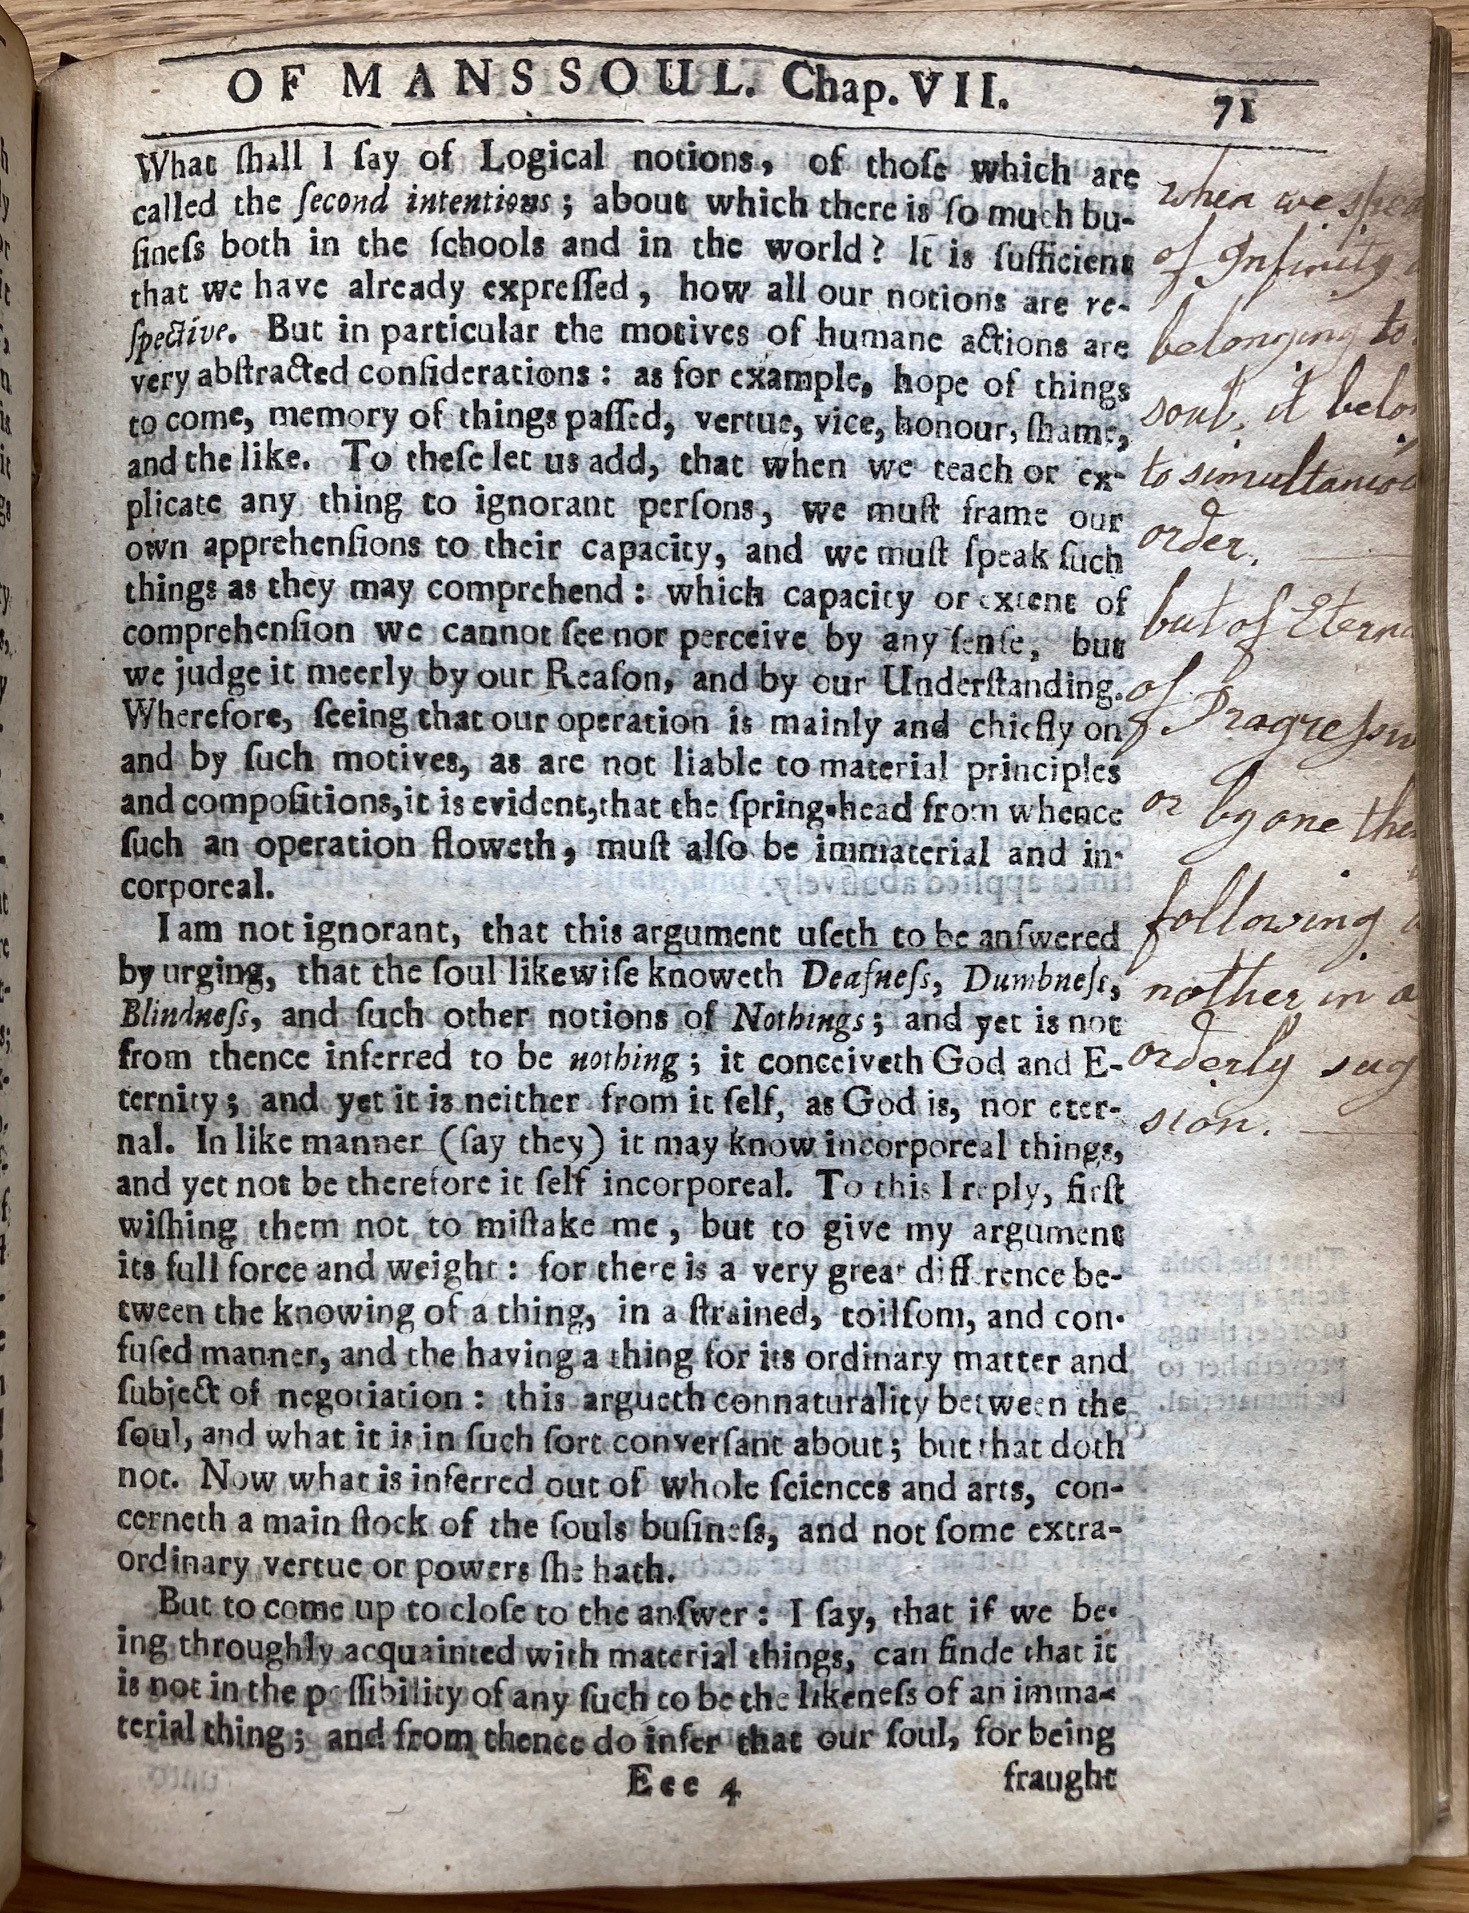 OF MANS SOUL. Chap. VII. 71
What ſhall I ſay of Logical notions, of thoſe which are
called the ſecond intentions; about which there is ſo much bu-
ſineſs both in the ſchools and in the world? It is ſufficient
that we have already expreſſed, how all our notions are re-
ſpective. But in particular the motives of humane actions are
very abſtracted conſiderations: as for example, hope of things
to come, memory of things paſſed, vertue, vice, honour, ſhame,
and the like. To theſe let us add, that when we teach or ex-
plicate any thing to ignorant perſons, we muſt frame our
own apprehenſions to their capacity, and we muſt ſpeak ſuch
things as they may comprehend: which capacity or extent of
comprehenſion we cannot ſee nor perceive by any ſenſe, but
we judge it meerly by our Reaſon, and by our Underſtanding.
Wherefore, ſeeing that our operation is mainly and chiefly on
and by ſuch motives, as are not liable to material principles
and compoſitions, it is evident, that the ſpring-head from whence
ſuch an operation floweth, muſt alſo be immaterial and in-
corporeal.
I am not ignorant, that this argument uſeth to be anſwered
by urging, that the ſoul likewiſe knoweth Deafneſs, Dumbneſs,
Blindneſs, and ſuch other notions of Nothings; and yet is not
from thence inferred to be nothing; it conceiveth God and E-
ternity; and yet it is neither from it ſelf, as God is, nor eter-
nal. In like manner (ſay they) it may know incorporeal things,
and yet not be therefore it ſelf incorporeal. To this I reply, firſt
wiſhing them not to miſtake me, but to give my argument
its full force and weight: for there is a very great difference be-
tween the knowing of a thing, in a ſtrained, toilſom, and con-
fuſed manner, and the having a thing for its ordinary matter and
ſubject of negotiation: this argueth connaturality between the
ſoul, and what it is in ſuch ſort converſant about; but that doth
not. Now what is inferred out of whole ſciences and arts, con-
cerneth a main ſtock of the ſouls buſineſs, and not ſome extra-
ordinary vertue or powers ſhe hath.
But to come up to cloſe to the anſwer: I ſay, that if we be-
ing throughly acquainted with material things, can finde that it
is not in the poſſibility of any ſuch to be the likeneſs of an imma-
terial thing; and from thence do infer that our ſoul, for being
Eee 4 fraught
when we spea
of Infinity
belonging to
soul, it belo
to simultanio
order.
but of Eterni
of Progressiv
or by one the
following a
nother in a
orderly sug
sion.